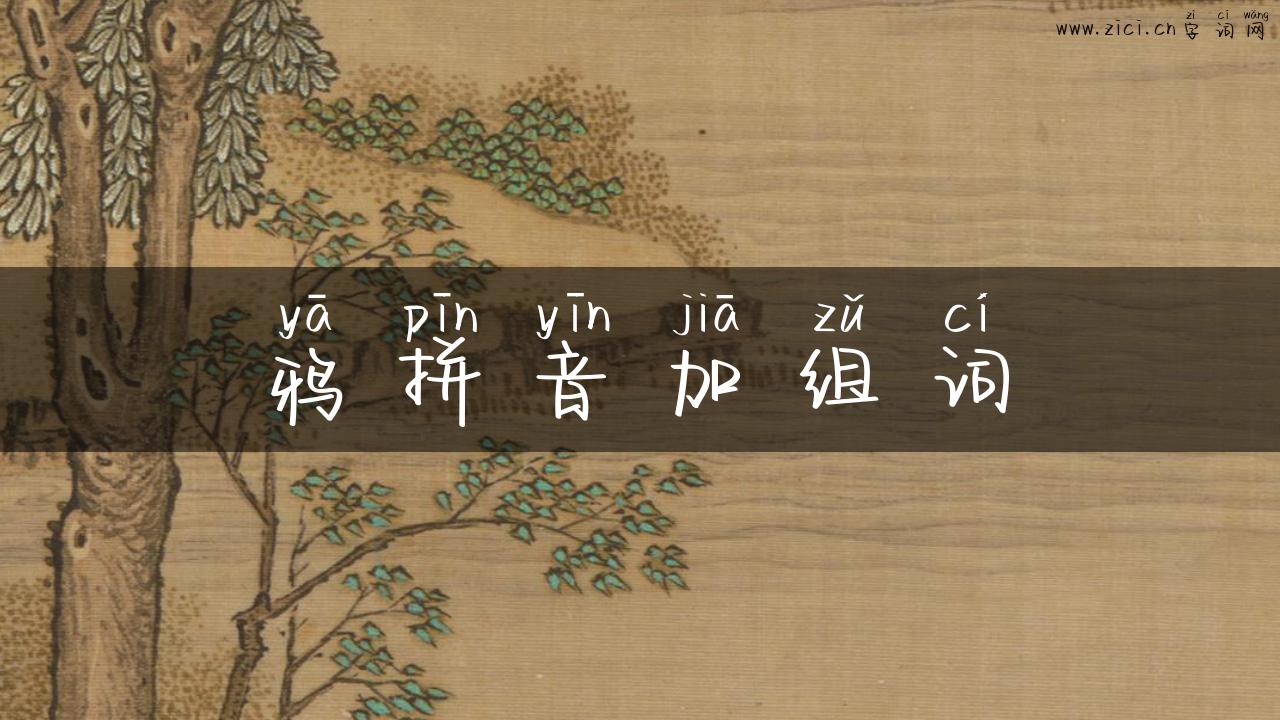 zì cí wǎng
www.zici.cn 字词网
yā pīn yīn jiā zǔ cí
鸦拼音加组词